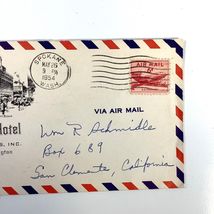 SPOKANE
MAY 26
9 PM
1954
WASH.
AIR MAIL
VIA AIR MAIL
Hotel
S, INC.
ngton
Wm R Schmidle
Box 689
San Clemente, California